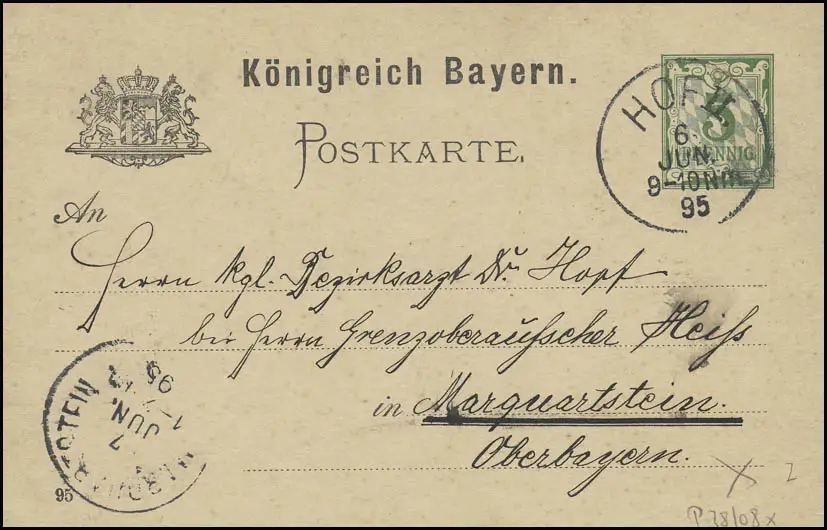 Königreich Bayern.
POSTKARTE.
HOF II
6.
JUN.
9-10 NM.
95
5
PFENNIG
An
Herrn kgl. Bezirksarzt Dr. Hopf
bei Herrn Grenzoberaufseher Heiss
in Marquartstein.
Oberbayern.
7
JUN.
95
95
P 38/08 x